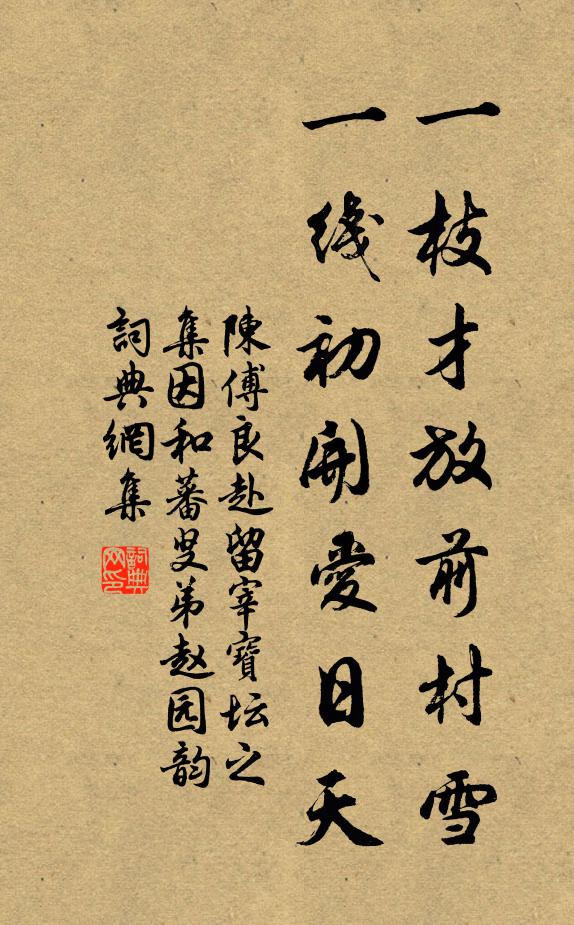 一枝才放前村雪
一线初開愛日天
陳傅良赴留宰寶坛之
集因和蕃叟弟赵园韵
詞典網集
詞典
网印